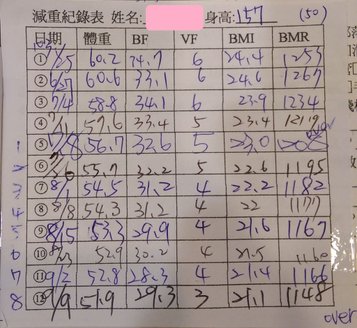 減重紀錄表 姓名: 身高: 157 (50)
日期 體重 BF VF BMI BMR
① 60.2 6 24.4 1253
② 60.6 33.1 6 24.6 1267
③ 7/4 58.8 34.1 6 23.9 1234
④ 57.6 33.4 5 23.4 1219
1 ⑤ 56.7 32.6 5 23.0 1208
2 ⑥ 32.2 5 22.6 1195
3 ⑦ 8/1 54.5 31.2 4 22.2 1182
4 ⑧ 8/8 54.3 31.2 4 22 1177
5 ⑨ 8/15 53.3 29.9 4 21.6 1167
6 ⑩ 52.9 30.2 4 21.5 1160
7 ⑪ 9/2 52.8 28.3 4 21.4 1166
8 ⑫ 9/9 51.9 29.3 3 21.1 1148
over